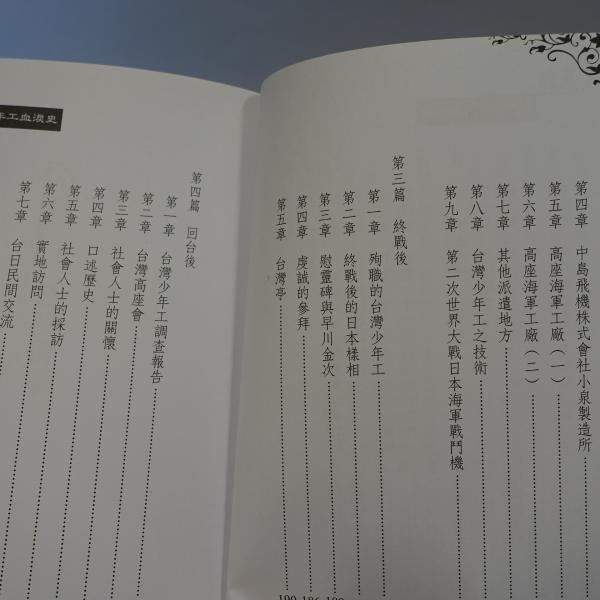 第四章 中島飛機株式會社小泉製造所
第五章 高座海軍工廠（一）
第六章 高座海軍工廠（二）
第七章 其他派遣地方
第八章 台灣少年工之技術
第九章 第二次世界大戰日本海軍戰鬥機
第三篇 終戰後
第一章 殉職的台灣少年工
第二章 終戰後的日本樣相
第三章 慰靈碑與早川金次
第四章 虔誠的參拜
第五章 台灣亭
第四篇 回台後
第一章 台灣少年工調查報告
第二章 台灣高座會
第三章 社會人士的關懷
第四章 口述歷史
第五章 社會人士的採訪
第六章 實地訪問
第七章 台日民間交流
年工血淚史